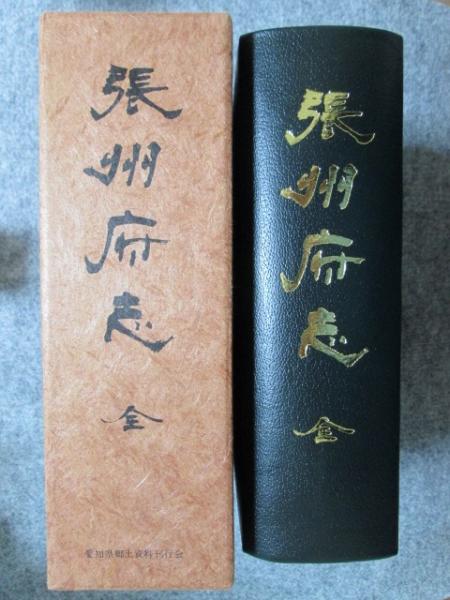 張州府志 全
愛知県郷土資料刊行会
張州府志 全